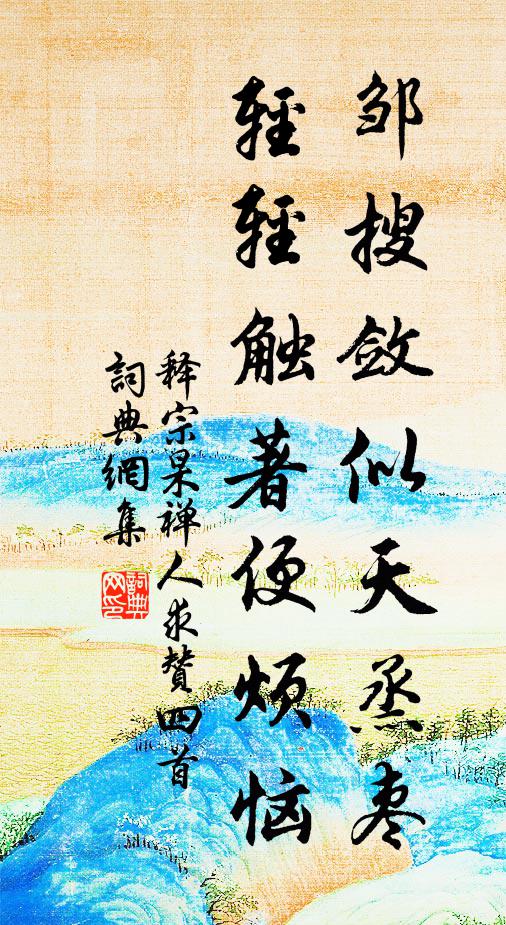 邹搜敛似天蒸枣
輕輕触著便烦恼
释宗杲禅人求賛四首
詞典網集
詞典网印